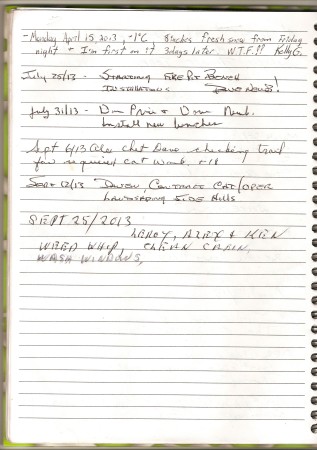 - Monday April 15, 2013, -1°C, 8inches fresh snow from Friday
night & I'm first on it 3days later W.T.F.!! Kelly G.
July 25/13 - Standing Fire Pit Bench
Installations
July 31/13 - Don
Install new benches
Sept 6/13 Dave checking trail
for required cat work. +18
Sept 12/13 Contract Cat/Oper
Landscaping Side Hills
SEPT 25/2013
LEROY, ALEX & KEN
WEED WHIP,
WASH WINDOWS,